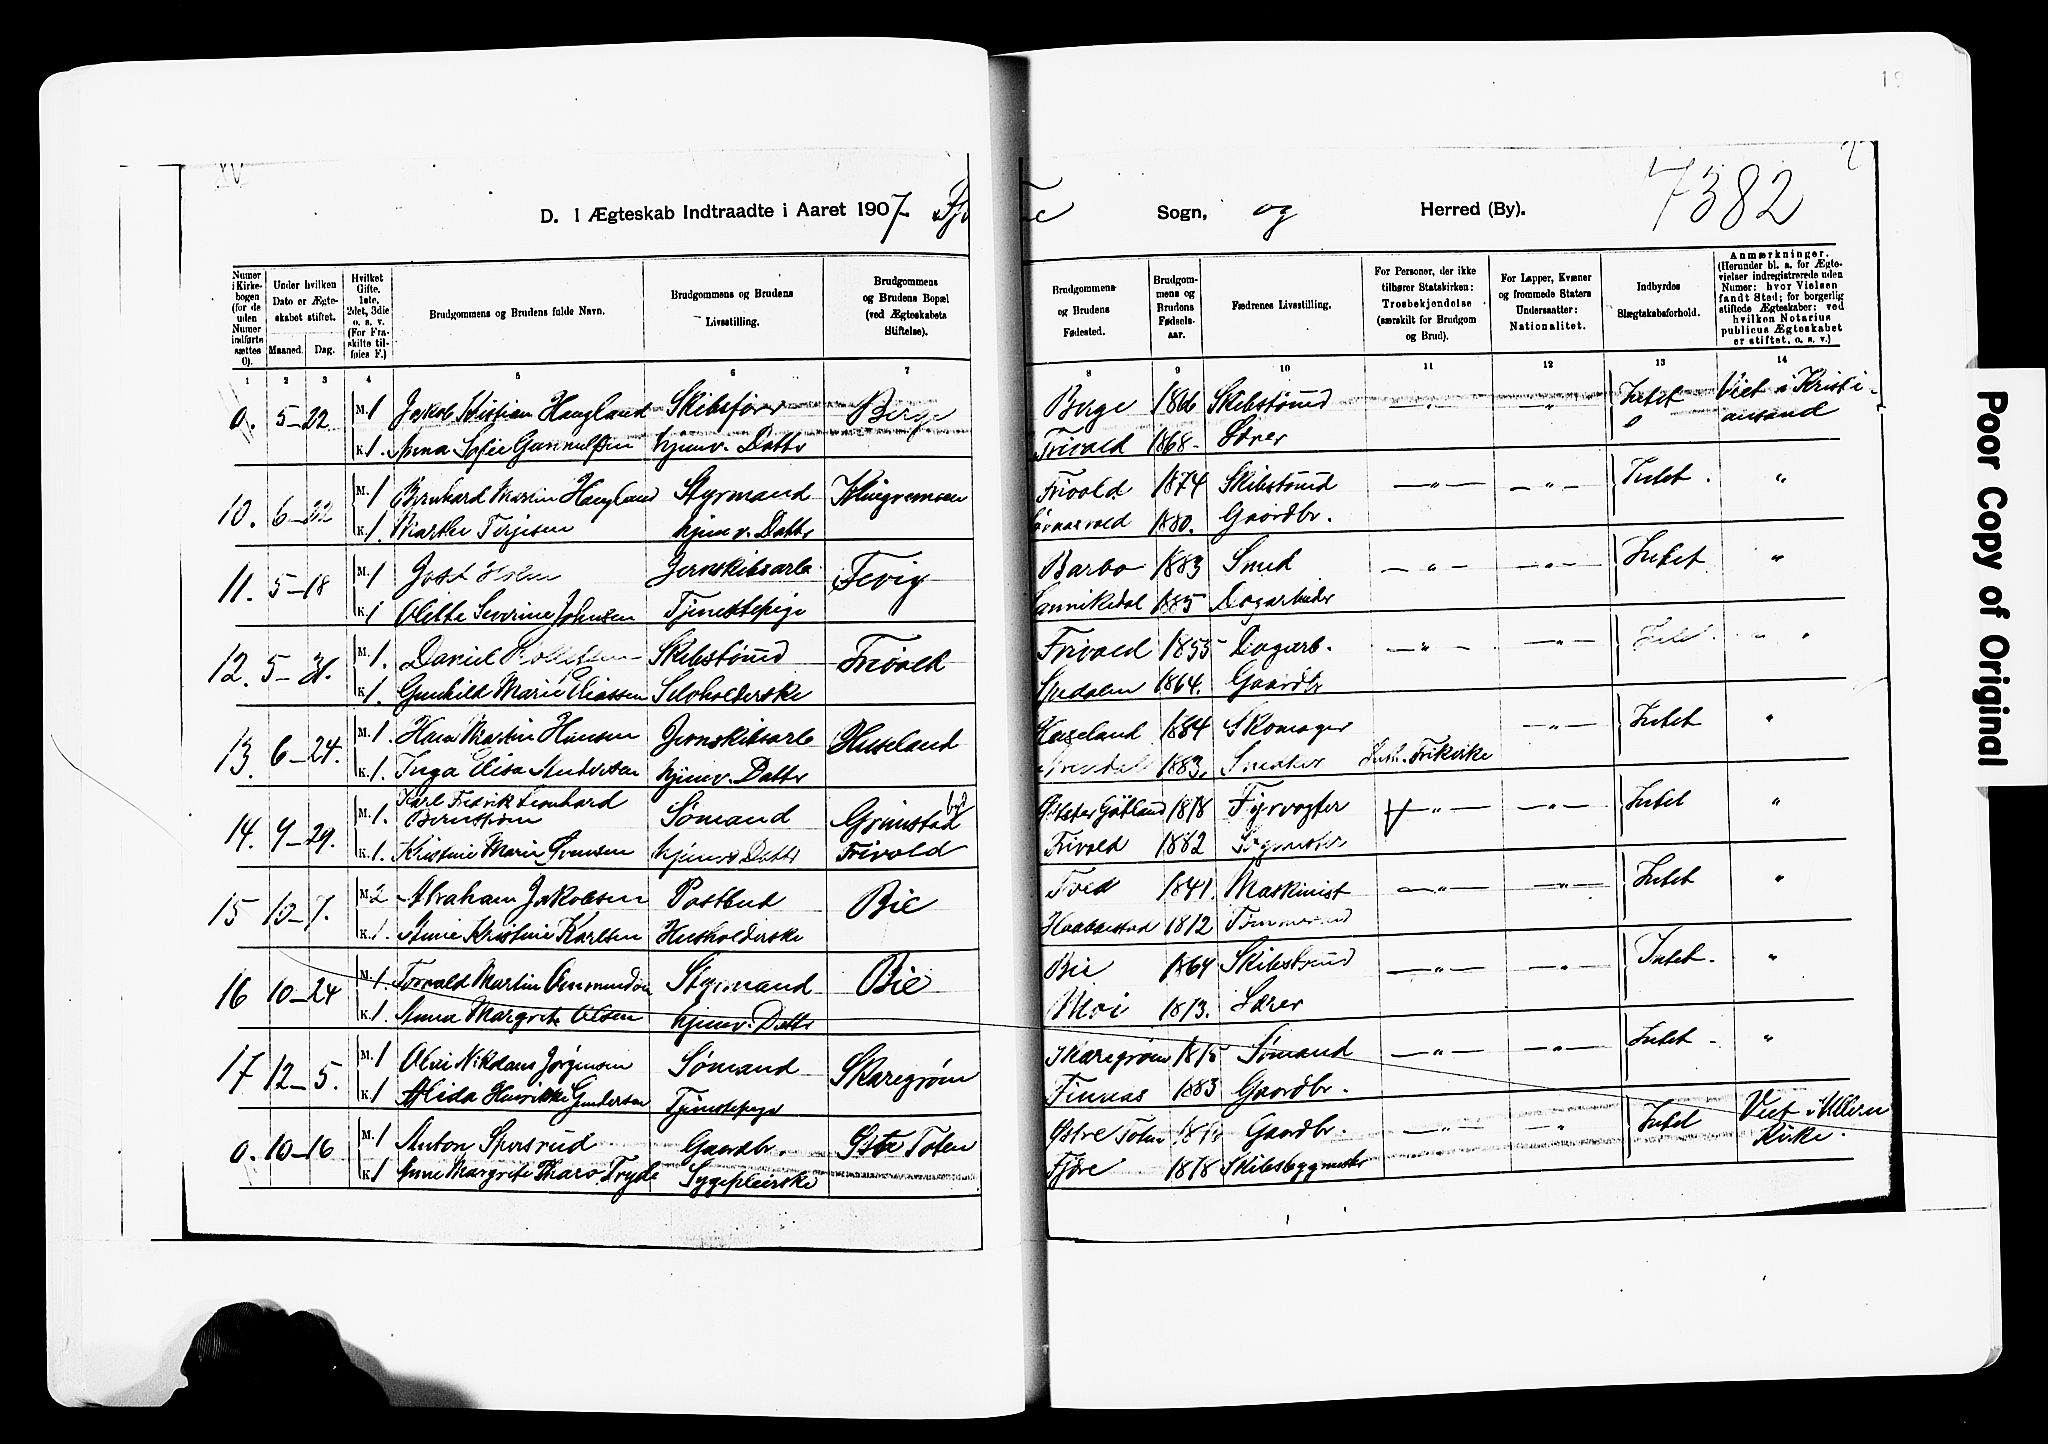 7382
D. I Ægteskab Indtraadte i Aaret 1907 Fjære Sogn, og Herred (By).
Numer i Kirkebogen (for de uden Numer indførte sættes 0).
Under hvilken Dato er Ægteskabet stiftet.
Maaned. Dag.
Hvilket Gifte, 1ste, 2det, 3die o. s. v. (For Fraskilte tilføies F.)
Brudgommens og Brudens fulde Navn.
Brudgommens og Brudens Livsstilling.
Brudgommens og Brudens Bopæl (ved Ægteskabets Stiftelse).
Brudgommens og Brudens Fødested.
Brudgommens og Brudens Fødselsaar.
Fædrenes Livsstilling.
For Personer, der ikke tilhører Statskirken: Trosbekjendelse (særskilt for Brudgom og Brud).
For Lapper, Kvæner og fremmede Staters Undersaatter: Nationalitet.
Indbyrdes Slægtskabsforhold.
Anmærkninger. (Herunder bl. a. for Ægtevielser indregistrerede uden Numer: hvor Vielsen fandt Sted; for borgerlig stiftede Ægteskaber: ved hvilken Notarius publicus Ægteskabet er stiftet, o. s. v.)
1 2 3 4 5 6 7 8 9 10 11 12 13 14
0. 5-22 M. 1 Jakob Kristian Haugland Skibsfører Berge Berge 1866 Skibstømd — " — — " — Intet Viet i Kristiansand
K. 1. Anna Sofie Gunnulfsen hjemv. Datter Frivold 1868 Lærer
10. 6-22 M. 1 Bernhard Martin Haugland Styrmand Klingremoen Frivold 1874 Skibstømd — " — — " — Intet "
K. 1. Marthe Terjesen hjemv. Datter 1880. Gaardbr.
11. 5-18 M. 1 Holm Jernskibsarb Fevig Barbo 1883 Smed — " — — " — Intet "
K. 1 Olette Severine Johnsen Tjenestepige Sannikedal 1885 Dagarbeider
12. 5-31. M. 1. Daniel Skibstømd Frivold Frivold 1855 Dagarb. — " — — " — " "
K. 1. Gunhild Marie Eliassen Selvholderske 1864. Gaardbr
13. 6-24. M. 1. Hans Martin Hansen Jernskibsarb Hæseland Hæseland 1884 Skomager — " — Intet "
K. 1. Inga Elisa Andersen hjemv. Datter Arendal 1883. Snedker Luth. Frikirke
14. 9-29. M. 1. Karl Fredrik Leonhard Bernstrøm Sømand Grimstad by Gøtland 1878 Fyrvogter — " — — " — Intet "
K. 1. Kristine Marie Svensen hjemv Datter Frivold Frivold 1882
15 10-7. M. 2 Abraham Jakobsen Postbud Bie Tved 1841. Maskinist — " — — " — Intet "
K. 1. Anne Kristine Karlsen Husholderske 1872 Tømmermd
16 10-24 M. 1 Torvald Martin Aanmundsen Styrmand Bie Bie 1864 Skibstømd — " — — " — Intet. "
K. 1. Anna Margrete Olsen hjemv. Datter Moi 1873. Lærer
17 12-5. M. 1 Oluf Nikolaus Jørgensen Sømand Skaregrøm Skaregrøm 1875 Sømand — " — — " — Intet "
K. 1 Alida Henrikke Gundersen Tjenestepige Finnæs 1883 Gaardbr.
0. 10-16 M. 1 Anton Spersrud Gaardbr. Østre Toten Østre Toten Gaardbr. — " — — " — Intet Viet i Ullern Kirke.
K. 1 Anne Margrete Tharo Tryde Sygepleierske Fjære 1878 Skibsbyggmester
Poor Copy of Original